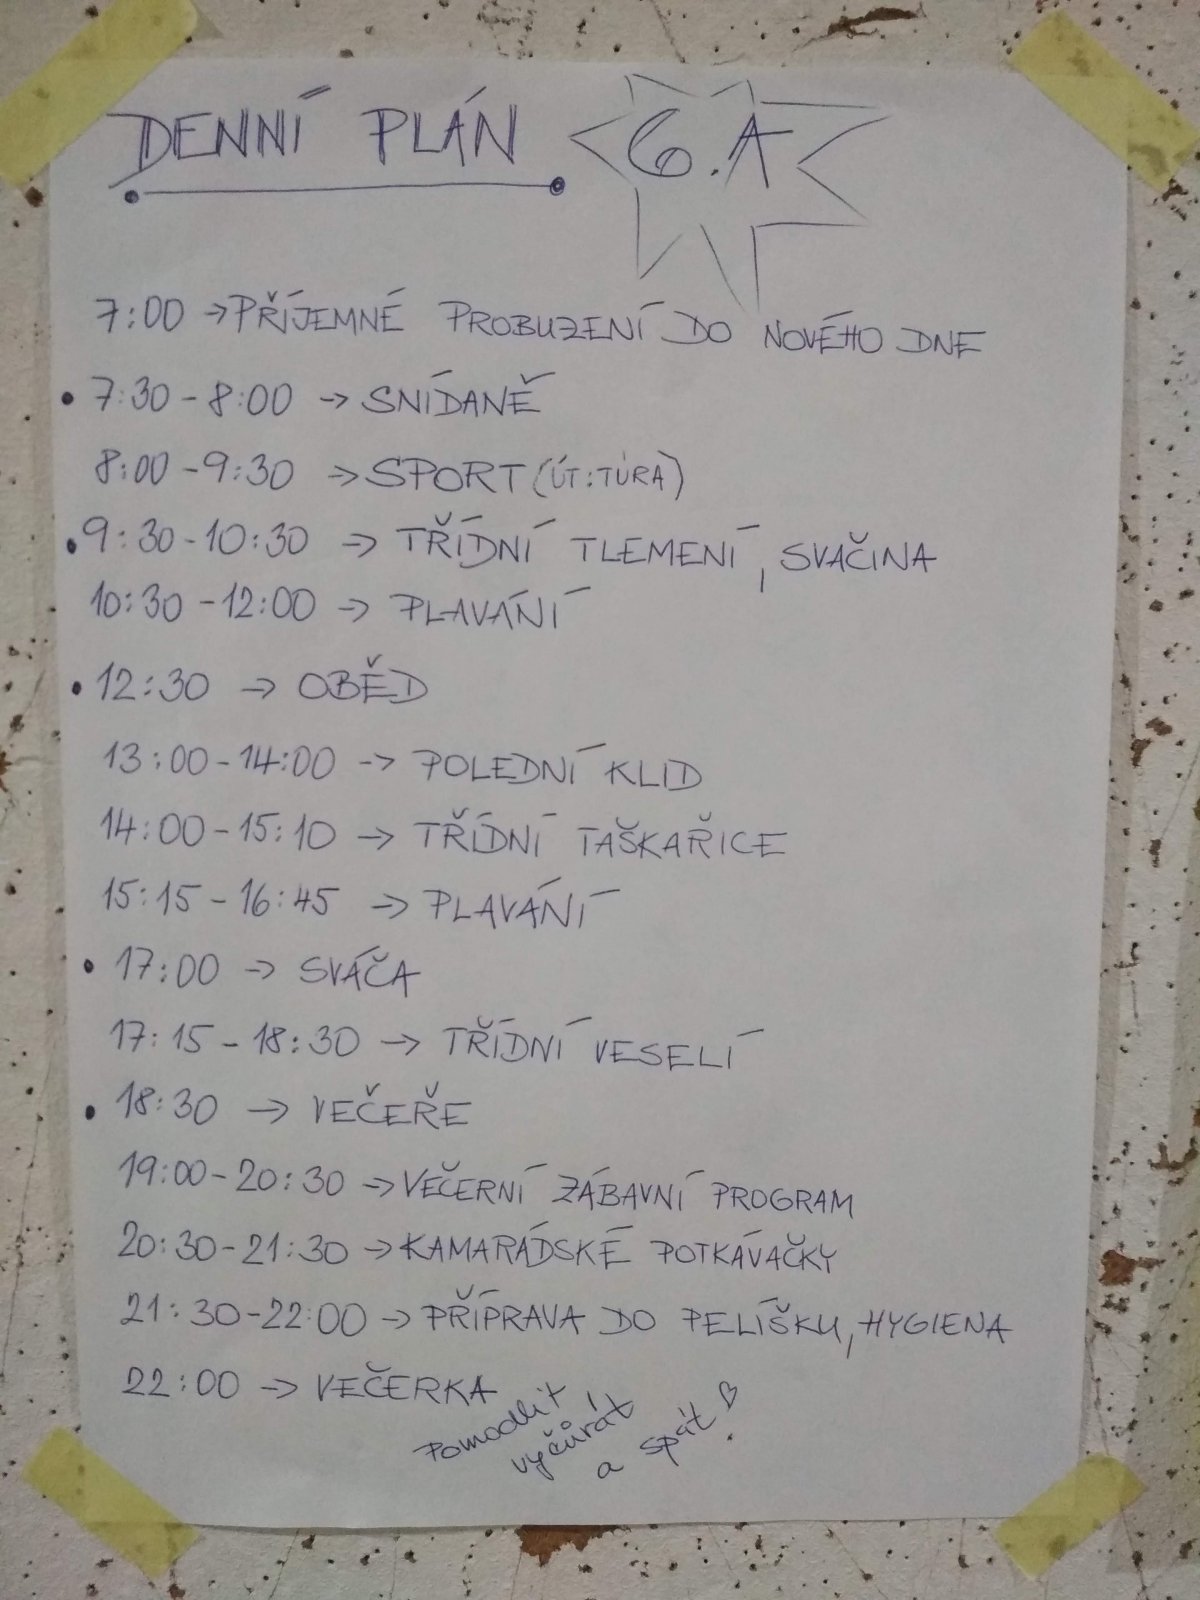 DENNÍ PLÁN 6.A
7:00 → PŘÍJEMNÉ PROBUZENÍ DO NOVÉHO DNE
• 7:30 - 8:00 → SNÍDANĚ
8:00 - 9:30 → SPORT (ÚT: TÚRA)
• 9:30 - 10:30 → TŘÍDNÍ TLEMENÍ, SVAČINA
10:30 - 12:00 → PLAVÁNÍ
• 12:30 → OBĚD
13:00 - 14:00 → POLEDNÍ KLID
14:00 - 15:10 → TŘÍDNÍ TAŠKAŘICE
15:15 - 16:45 → PLAVÁNÍ
• 17:00 → SVÁČA
17:15 - 18:30 → TŘÍDNÍ VESELÍ
• 18:30 → VEČEŘE
19:00 - 20:30 → VEČERNÍ ZÁBAVNÍ PROGRAM
20:30 - 21:30 → KAMARÁDSKÉ POTKÁVAČKY
21:30 - 22:00 → PŘÍPRAVA DO PELÍŠKU, HYGIENA
22:00 → VEČERKA
Pomodlit
vyčůrát
a spát!